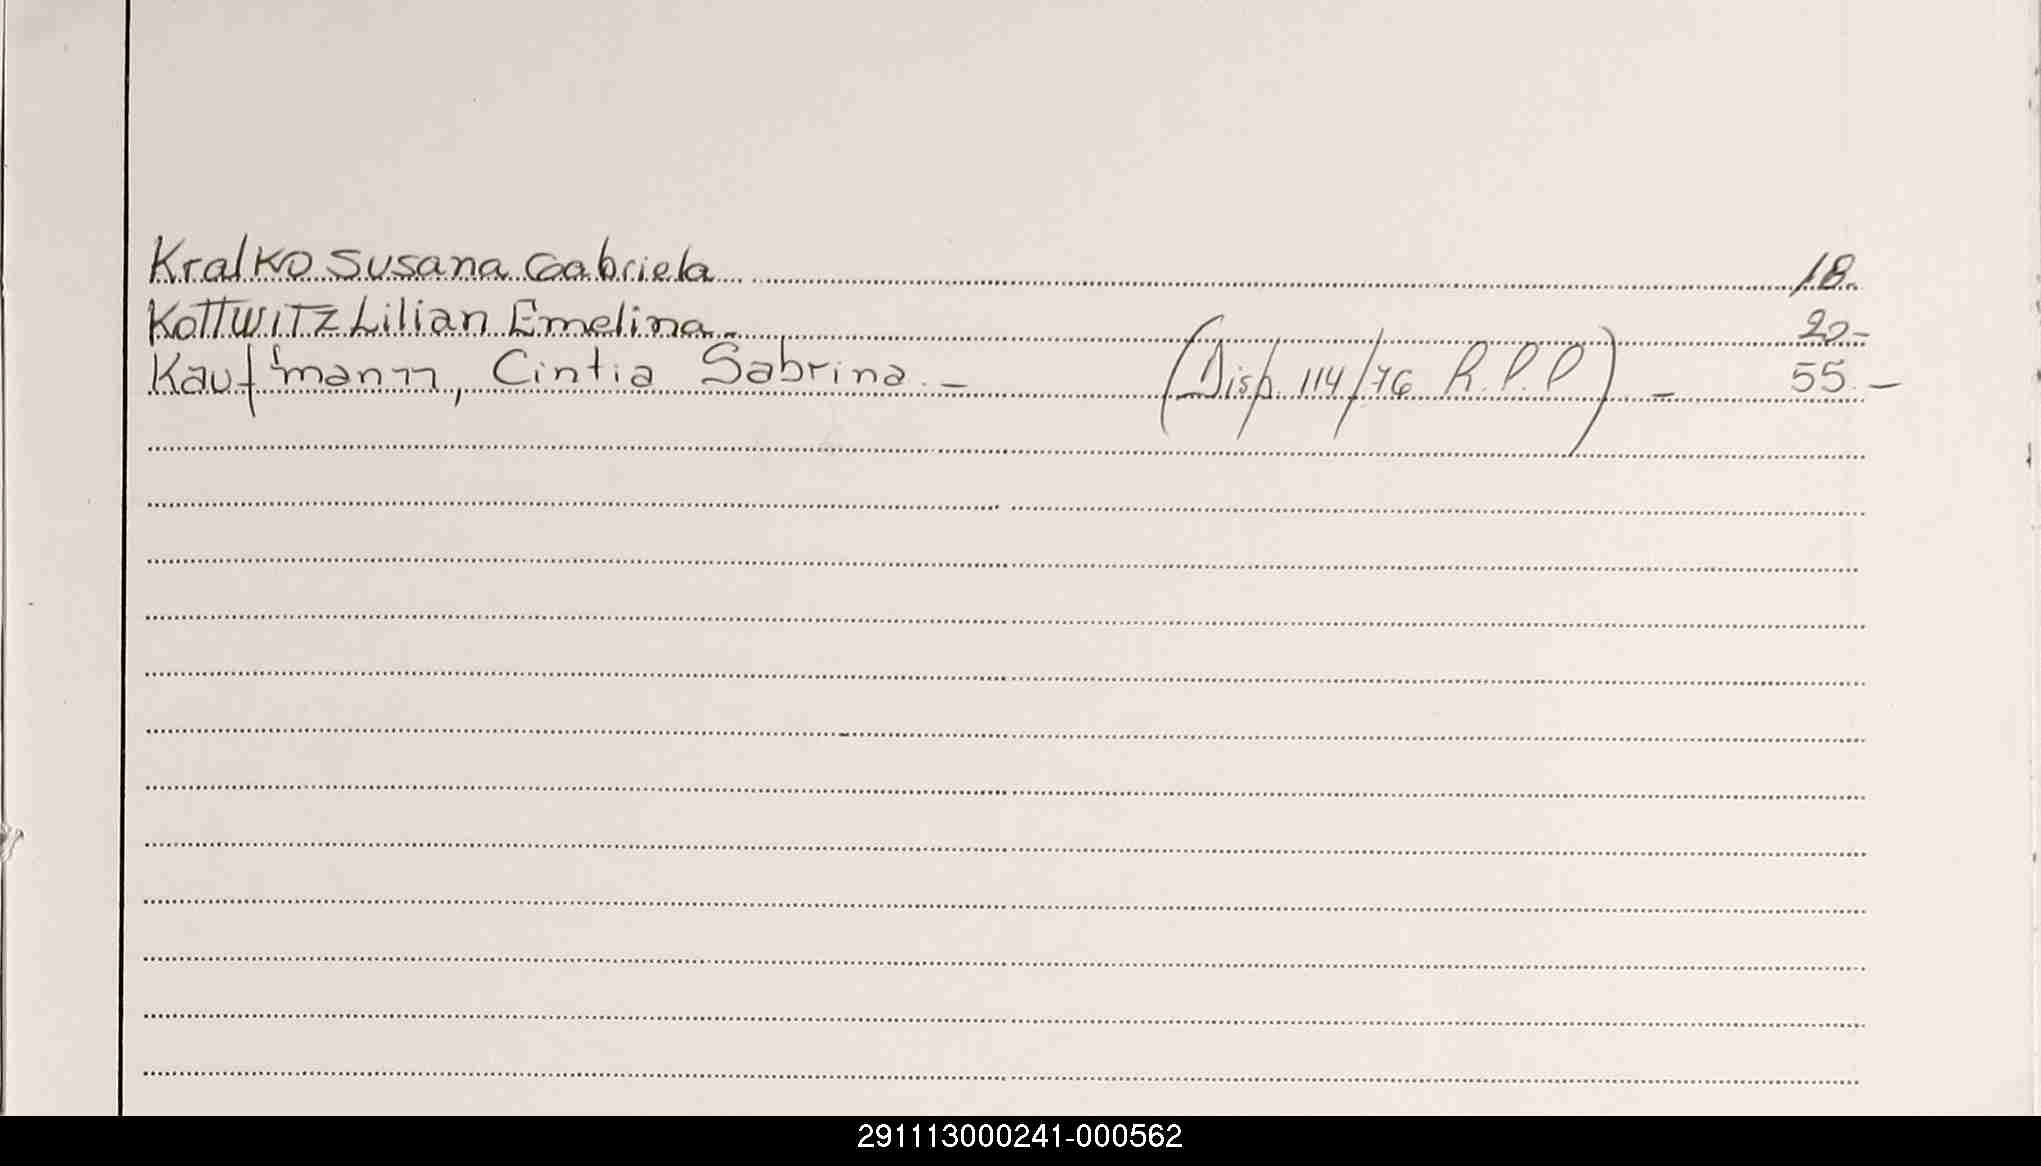 Kralko Susana Gabriela 18.
Kottwitz Lilian Emelina - 20 -
Kaufmann, Cintia Sabrina. - (Disp. 114/76 R.P.P) - 55. -
291113000241-000562